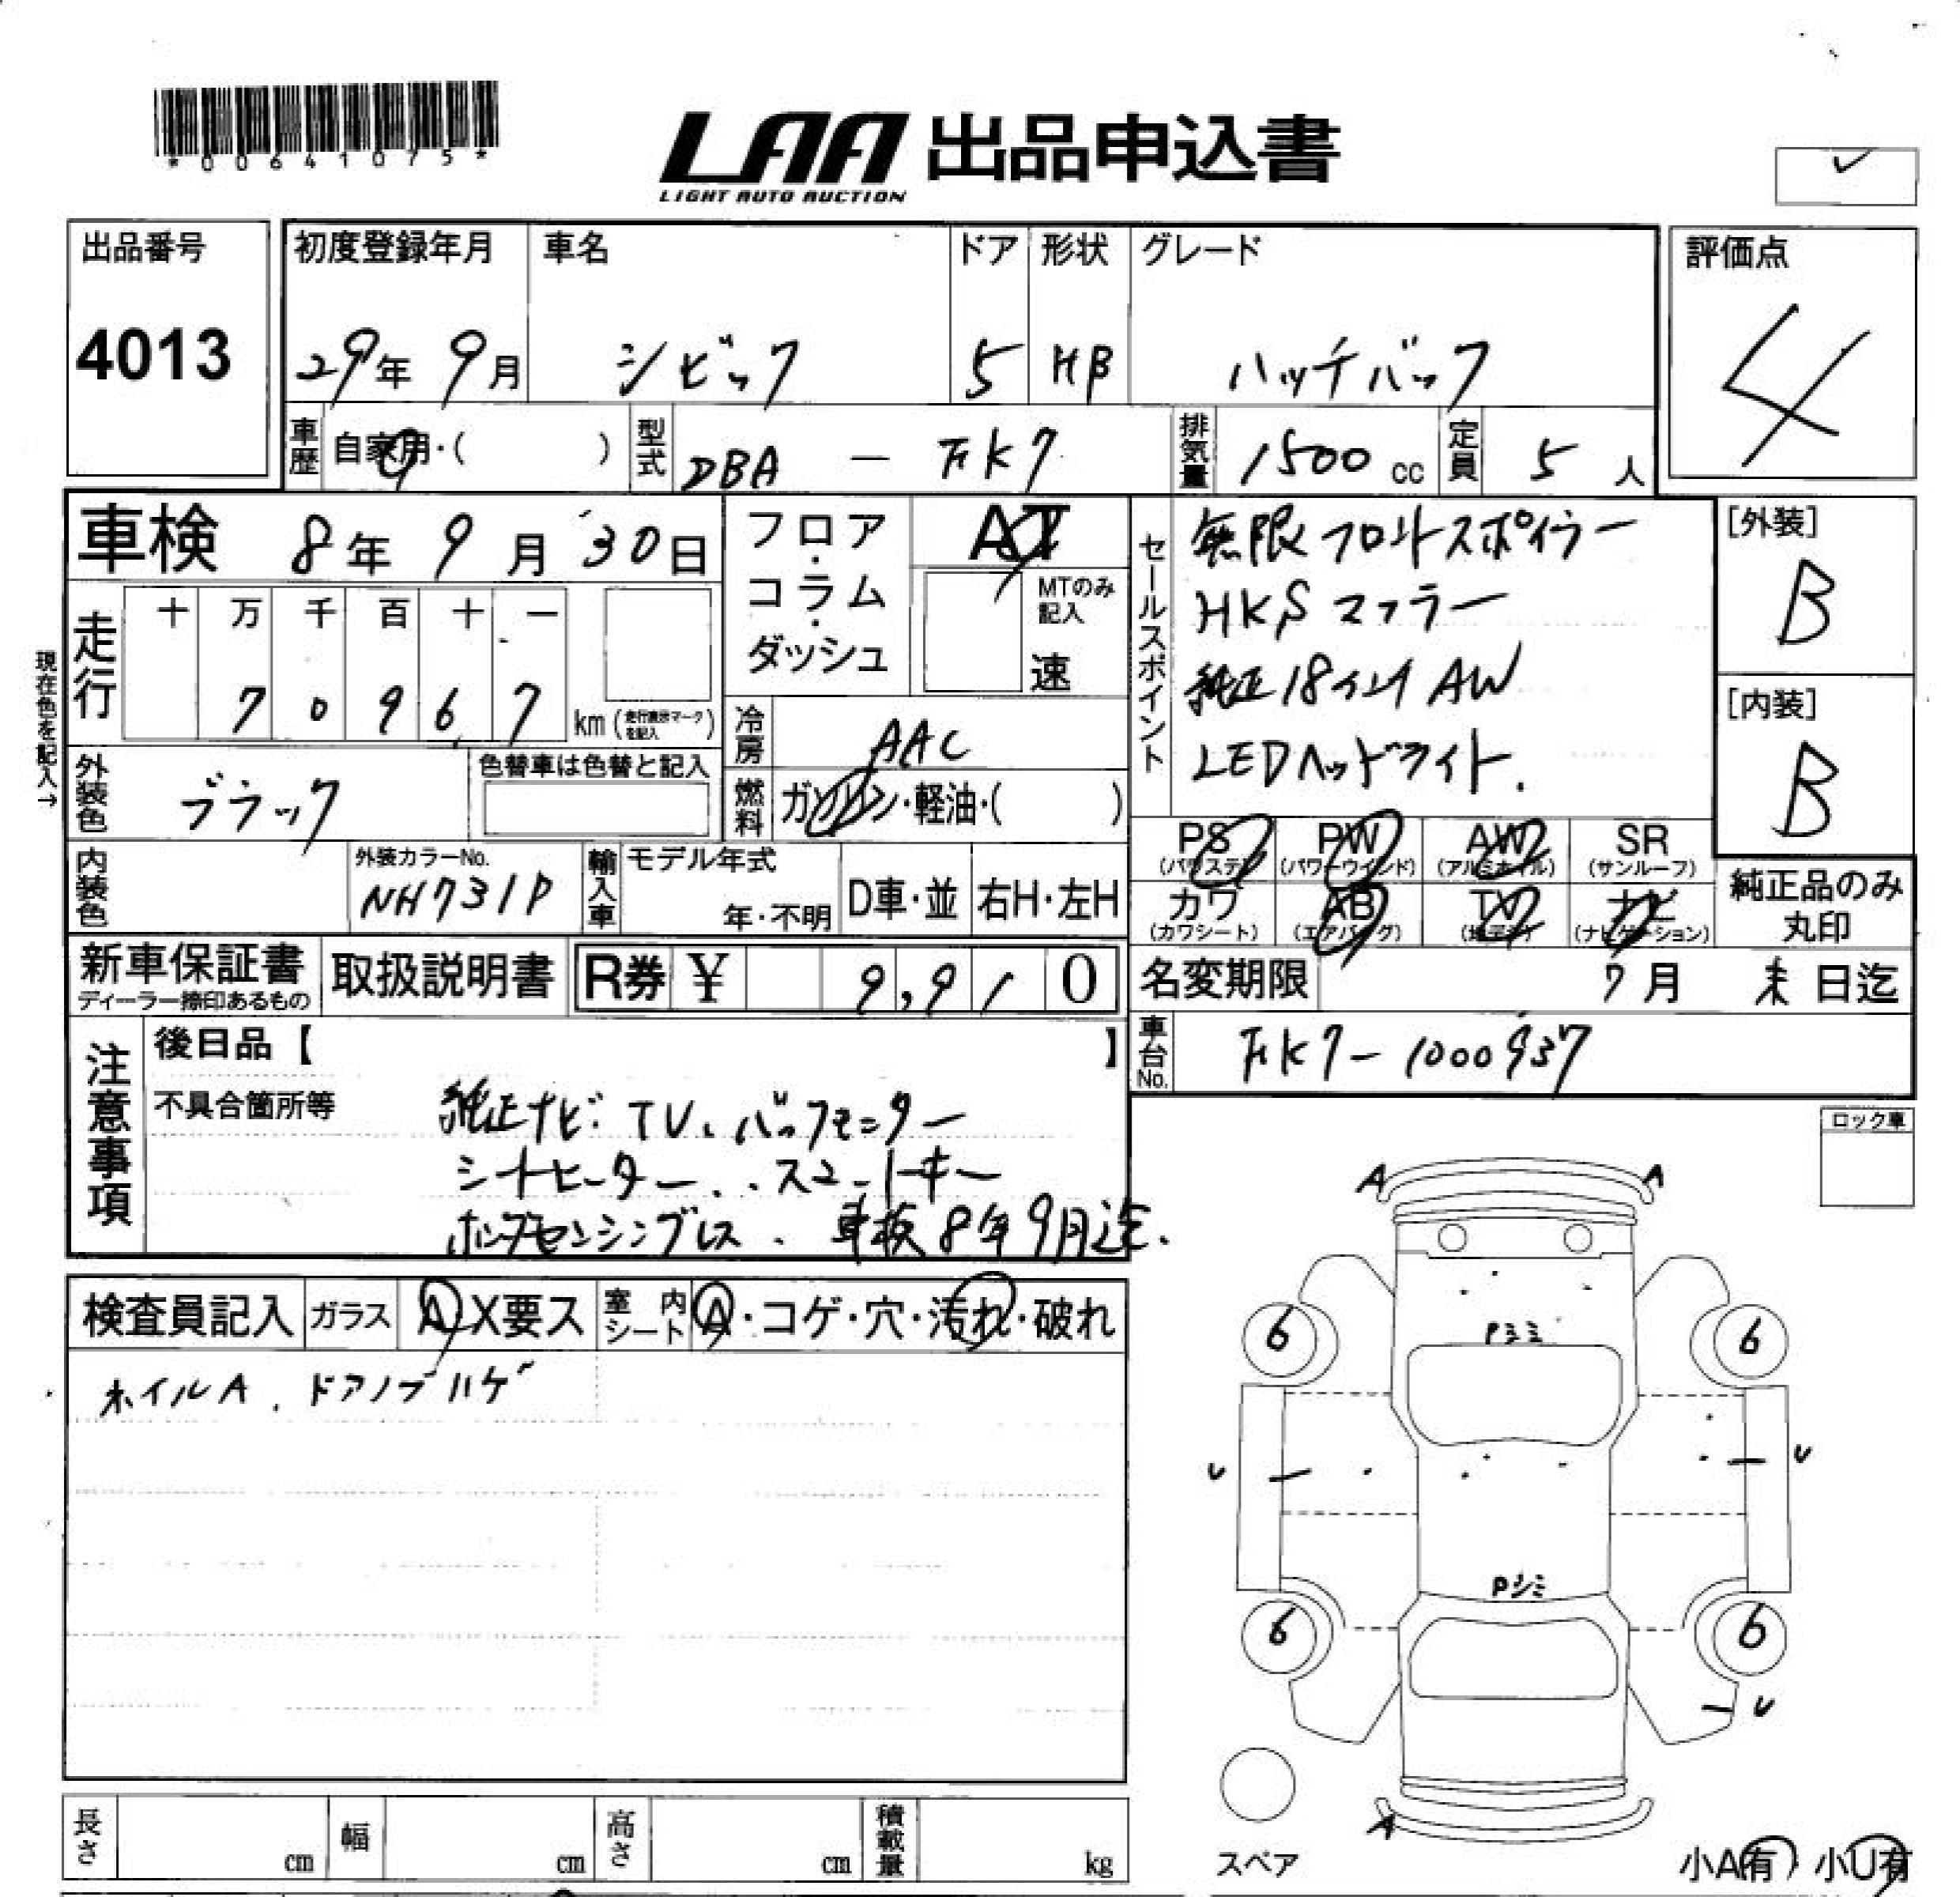 *00641075*
LAA 出品申込書
LIGHT AUTO AUCTION
出品番号
4013
初度登録年月
29年 9月
車名
シビック
ドア
5
形状
HB
グレード
ハッチバック
評価点
4
車歴
自家用・( )
型式
DBA - FK7
排気量
1500 cc
定員
5 人
車検 8年 9月 30日
フロア・コラム・ダッシュ
AT
MTのみ記入
速
セールスポイント
無限フロントスポイラー
HKSマフラー
純正18インチAW
LEDヘッドライト.
[外装]
B
[内装]
B
現在色を記入→
走行
十 万 千 百 十 一
7 0 9 6 7
km (走行表示マークを記入)
冷房
AAC
外装色
ブラック
色替車は色替と記入
燃料
ガソリン・軽油・( )
内装色
外装カラーNo.
NH731P
輸入車
モデル年式
年・不明
D車・並
右H・左H
PS (パワステ)
PW (パワーウインド)
AW (アルミホイル)
SR (サンルーフ)
カワ (カワシート)
AB (エアバッグ)
TV (地デジ)
ナビ (ナビゲーション)
純正品のみ丸印
新車保証書
ディーラー捺印あるもの
取扱説明書
R券 ¥ 9,910
名変期限 7月 末日迄
車台No.
FK7-1000937
注意事項
後日品【 】
不具合箇所等
純正ナビ.TV.バックモニター
シートヒーター..スマートキー
ホンダセンシングレス. 車検8年9月迄.
ロック車
検査員記入
ガラス A X要ス
室内シート A・コゲ・穴・汚れ・破れ
ホイルA. ドアノブハゲ
A A
6 6
Pシミ
U U
Pシミ
6 6
U
A
スペア
小A有 小U有
長さ cm
幅 cm
高さ cm
積載量 kg